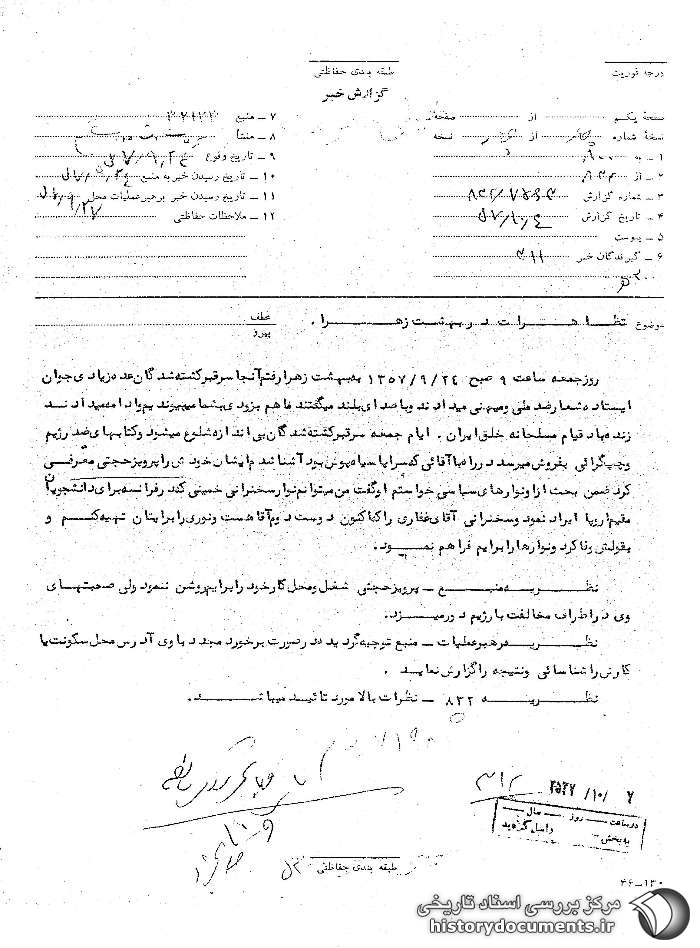 طبقه بندی حفاظتی
درجه فوریت
گزارش خبر
نسخهٔ یکم از صفحهٔ
نسخهٔ شماره از نسخه
۱ – به ۹۰۰
۲ – از
۳ – شماره گزارش
۴ – تاریخ گزارش ۵۷/۱۰/۴
۵ – پیوست
۶ – گیرندگان خبر ۳۱۱
۷ – منبع
۸ – منشأ
۹ – تاریخ وقوع ۵۷/۹/۲۴
۱۰ – تاریخ رسیدن خبر به منبع ۵۷/۹/۲۴
۱۱ – تاریخ رسیدن خبر برهبر عملیات محل ۵۷/۹/۲۷
۱۲ – ملاحظات حفاظتی
موضوع تظاهرات در بهشت زهرا .
عطف
پیرو
روز جمعه ساعت ۹ صبح ۱۳۵۷/۹/۲۴ به بهشت زهرا رفتم آنجا سر قبر کشته شدگان عده زیادی جوان
ایستاده شعار ضد ملی و میهنی میدادند و با صدای بلند میگفتند ما هم بزودی بشما میپیوندیم و ادامه میدادند
زنده باد قیام مسلحانه خلق ایران . ایام جمعه سر قبر کشته شدگان بی اندازه شلوغ میشود و کتابهای ضد رژیم
و چپ گرائی بفروش میرسد در راه با آقائی که سراپا سیاه پوش بود آشنا شدم ایشان خودش را پرویز حجتی معرفی
کرد ضمن بحث از او نوارهای سیاسی خواستم او گفت من میتوانم نوار سخنرانی خمینی که در فرانسه برای دانشجویان
مقیم اروپا ایراد نمود و سخنرانی آقای غفاری را که اکنون دوست دوم آقا هست و نوری را برایتان تهیه کنم و
بقولش وفا کرد و نوارها را برایم فراهم نمود .
نظریه منبع – پرویز حجتی شغل و محل کار خود را برایم روشن ننمود ولی صحبتهای
وی در اطراف مخالفت با رژیم دور میزد .
نظریه رهبر عملیات – منبع توجیه گردیده در صورت برخورد مجدد با وی آدرس محل سکونت یا
کارش را شناسائی و نتیجه را گزارش نماید .
نظریه ۸۳۲ – نظرات بالا مورد تائید میباشد .
۳۱۲
در ساعت روز سال
به بخش واصل گردید
طبقه بندی حفاظتی
۴۶–۱۳۰
مرکز بررسی اسناد تاریخی
historydocuments.ir